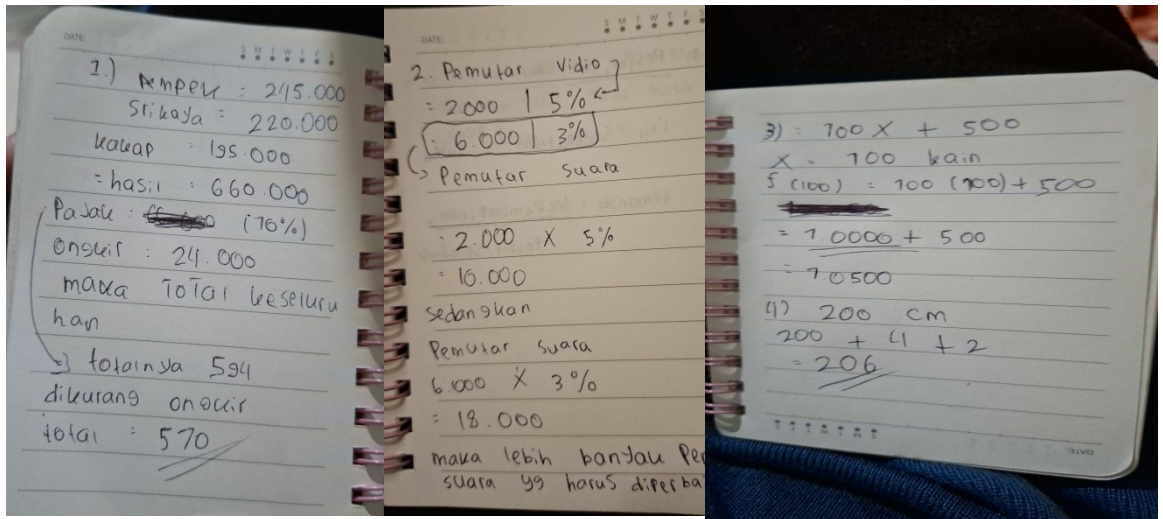 DATE:
S M T W T F S
1.) Pempek : 245.000
Srikaya = 220.000
kakap = 195.000
= hasil : 660.000
Pajak : (10%)
ongkir : 24.000
maka TOTAl keseluru
han
=) totalnya 594
dikurang ongkir
total = 570
DATE:
S M T W T F S
2. Pemutar Vidio
= 2000 | 5%
: 6.000 | 3%
Pemutar suara
: 2.000 X 5%
= 10.000
sedangkan
Pemutar suara
6.000 X 3%
= 18.000
maka lebih banyak Pe
suara yg harus diperba
3) = 100 X + 500
X = 100 kain
f (100) = 100 (100) + 500
= 1.0000 + 500
= 1.0500
4) 200 cm
200 + 4 + 2
= 206
S M T W T F S
DATE: